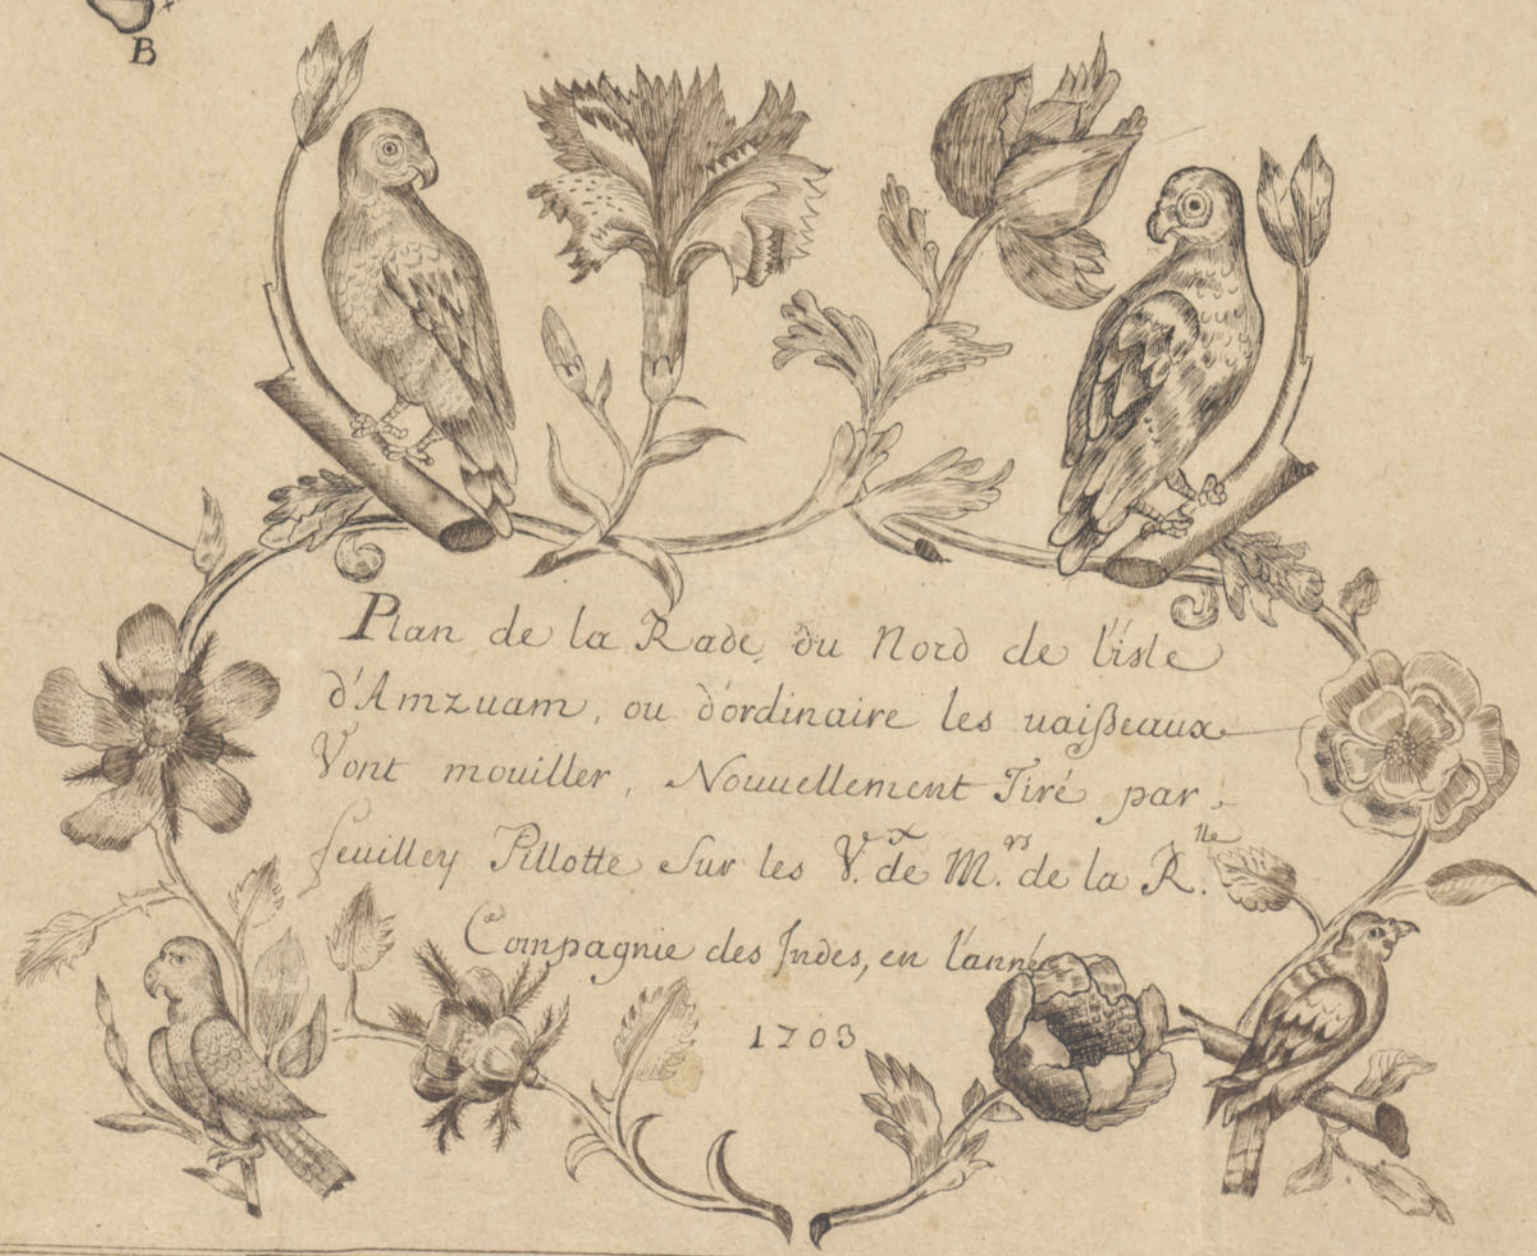 B
Plan de la Rade, du Nord de l'isle
d'Amzuam, ou d'ordinaire les uaißeaux
Vont mouiller, Nouuellement Tiré par
feuilley Pillotte Sur les V.x de M.rs de la R.lle
Compagnie des Indes, en l'année
1703